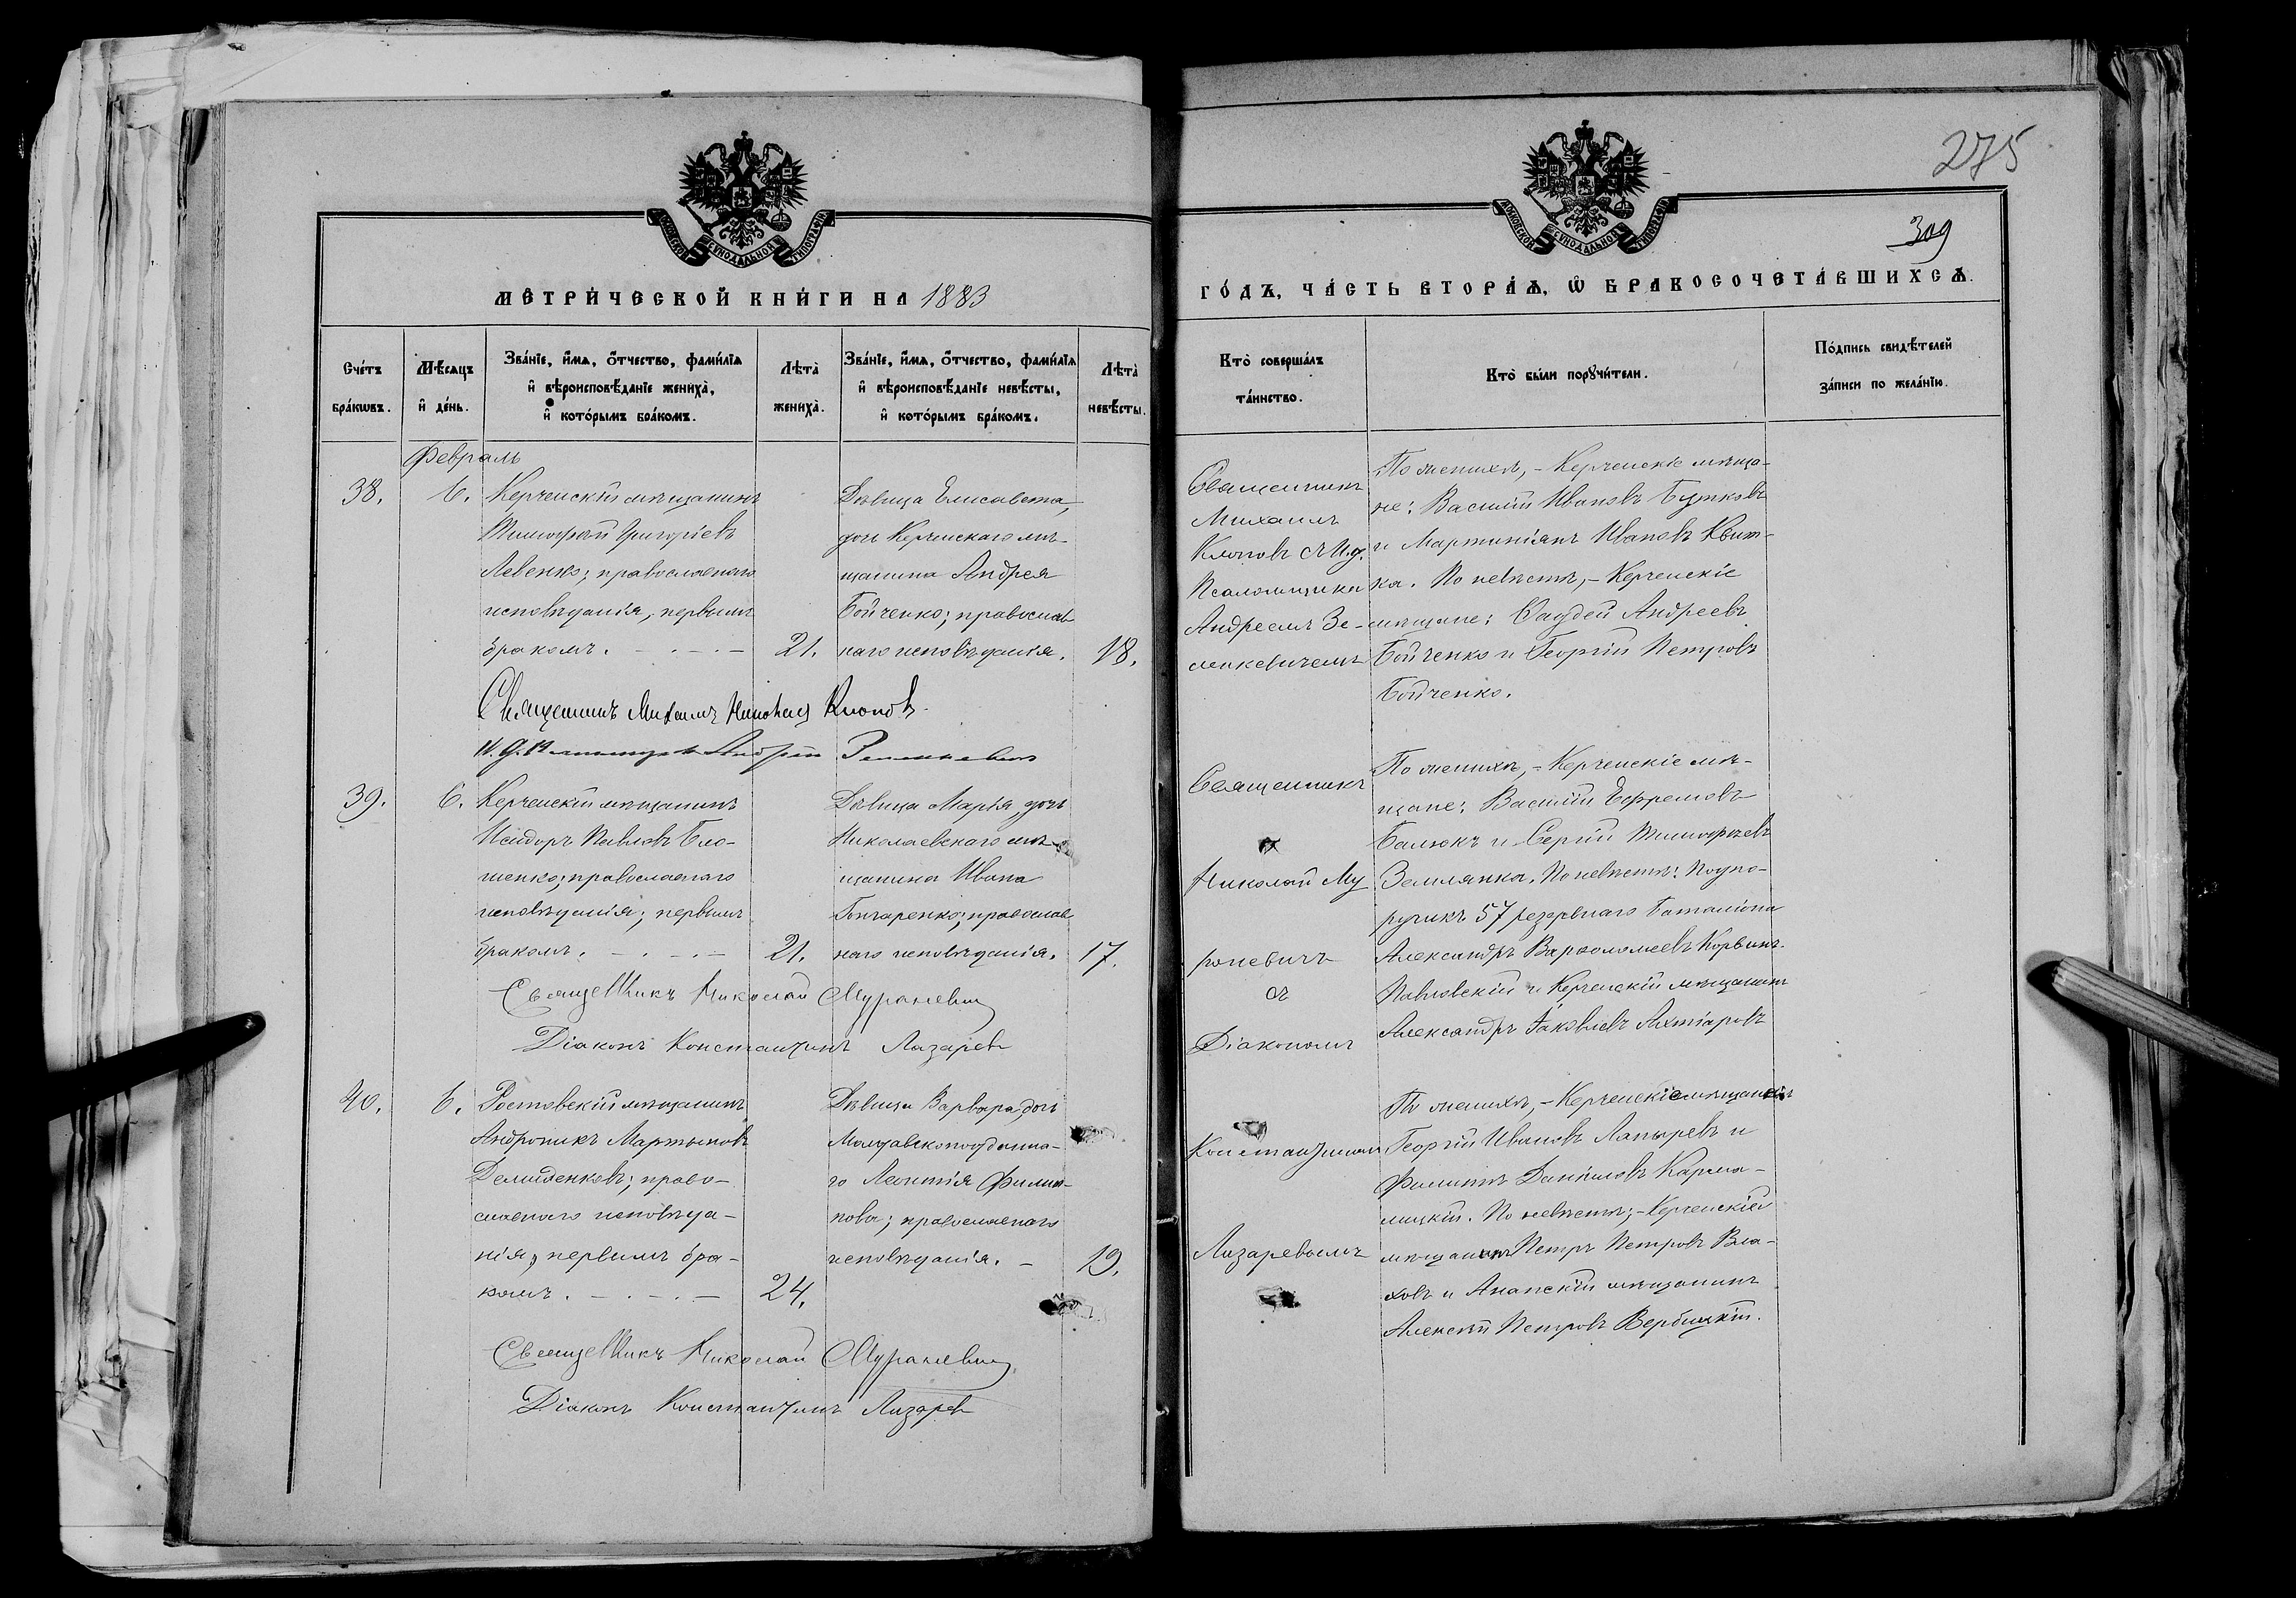 275
309
МОСКОВСКОЙ СѴНОДАЛЬНОЙ ТИПОГРАФІИ
МОСКОВСКОЙ СѴНОДАЛЬНОЙ ТИПОГРАФІИ
МЕТРИ́ЧЕСКОЙ КНИ́ГИ НА 1883
ГО́ДЪ, ЧА́СТЬ ВТОРА́Ѧ, Ѡ҆ БРАКОСОЧЕТА́ВШИХСѦ.
Сче́тъ
бра́кѡвъ.
Мѣ́сѧцъ
и҆ де́нь.
Зва́нїе, и҆́мѧ, ѻ҆́тчество, фами́лїѧ
и҆ вѣроисповѣ́данїе жениха̀,
и҆ кото́рымъ бра́комъ.
Лѣта̀
жениха̀.
Зва́нїе, и҆́мѧ, ѻ҆́тчество, фами́лїѧ
и҆ вѣроисповѣ́данїе невѣ́сты,
и҆ кото́рымъ бра́комъ.
Лѣта̀
невѣ́сты.
Кто̀ соверша́лъ
та́инство.
Кто̀ бы́ли порꙋчи́тели.
По́дпись свидѣ́телей
за́писи по жела́нїю.
Февраль
38.
6.
Керченскій мѣщанинъ
Тимофей Григоріевъ
Левенко; православнаго
исповѣданія, первымъ
бракомъ. – . – . –
21.
Дѣвица Елисавета,
дочь Керченскаго мѣ-
щанина Андрея
Бойченко; православ-
наго исповѣданія.
18.
Священникъ
Михаилъ
Клоповъ с И.д.
Псаломщика
Андреемъ Зе-
микевичемъ
По женихѣ, – Керченскіе мѣща-
не: Василій Ивановъ Бутковъ
и Мартиніанъ Ивановъ Квит-
ка. По невѣстѣ, – Керченскіе
мѣщане: Фаддей Андреевъ
Бойченко и Георгій Петровъ
Бойченко.
Священникъ Михаилъ Клоповъ.
И. д. Андрей
39.
6.
Керченскій мѣщанинъ
Исидоръ Павловъ Бло-
шенко; православнаго
исповѣданія; первымъ
бракомъ. – . – . –
21.
Дѣвица Марія, дочь
Николаевскаго мѣ-
щанина Ивана
Гончаренко; православ-
наго исповѣданія.
17.
Священникъ
Николай Му
роневичъ
съ
Діакономъ
По женихѣ, – Керченскіе мѣ-
щане: Василій Ефремовъ
Балюкъ и Сергій Тимофѣевъ
Землянка. По невѣстѣ: Подпо-
ручикъ 57 резервнаго баталіона
Александръ Варѳоломеевъ Корвинъ-
Павловскій и Керченскій мѣщанинъ
Александръ Іаковлевъ Ахтіаровъ
Священникъ Николай Мураневичъ
Діаконъ Константинъ Лазарев
40.
6.
Ростовскій мѣщанинъ
Андроникъ Мартыновъ
Демиденковъ; право-
славнаго исповѣда-
нія, первымъ бра-
комъ. – . – . –
24.
Дѣвица Варвара, дочь
Молдавскоподданна-
го Леонтія Филип-
пова; православнаго
исповѣданія. –
19.
Константиномъ
Лазаревымъ
По женихѣ, – Керченскіе мѣщане
Георгій Ивановъ Лапыревъ и
Филиппъ Даніиловъ Карма-
лицкій. По невѣстѣ; – Керченскій
мѣщанинъ Петръ Петровъ Вла-
ховъ и Анапскій мѣщанинъ
Алексѣй Петровъ Вербицкій.
Священникъ Николай Мураневичъ
Діаконъ Константинъ Лазарев